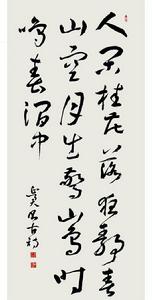 人闲桂花落夜静春
山空月出惊山鸟时
鸣春涧中